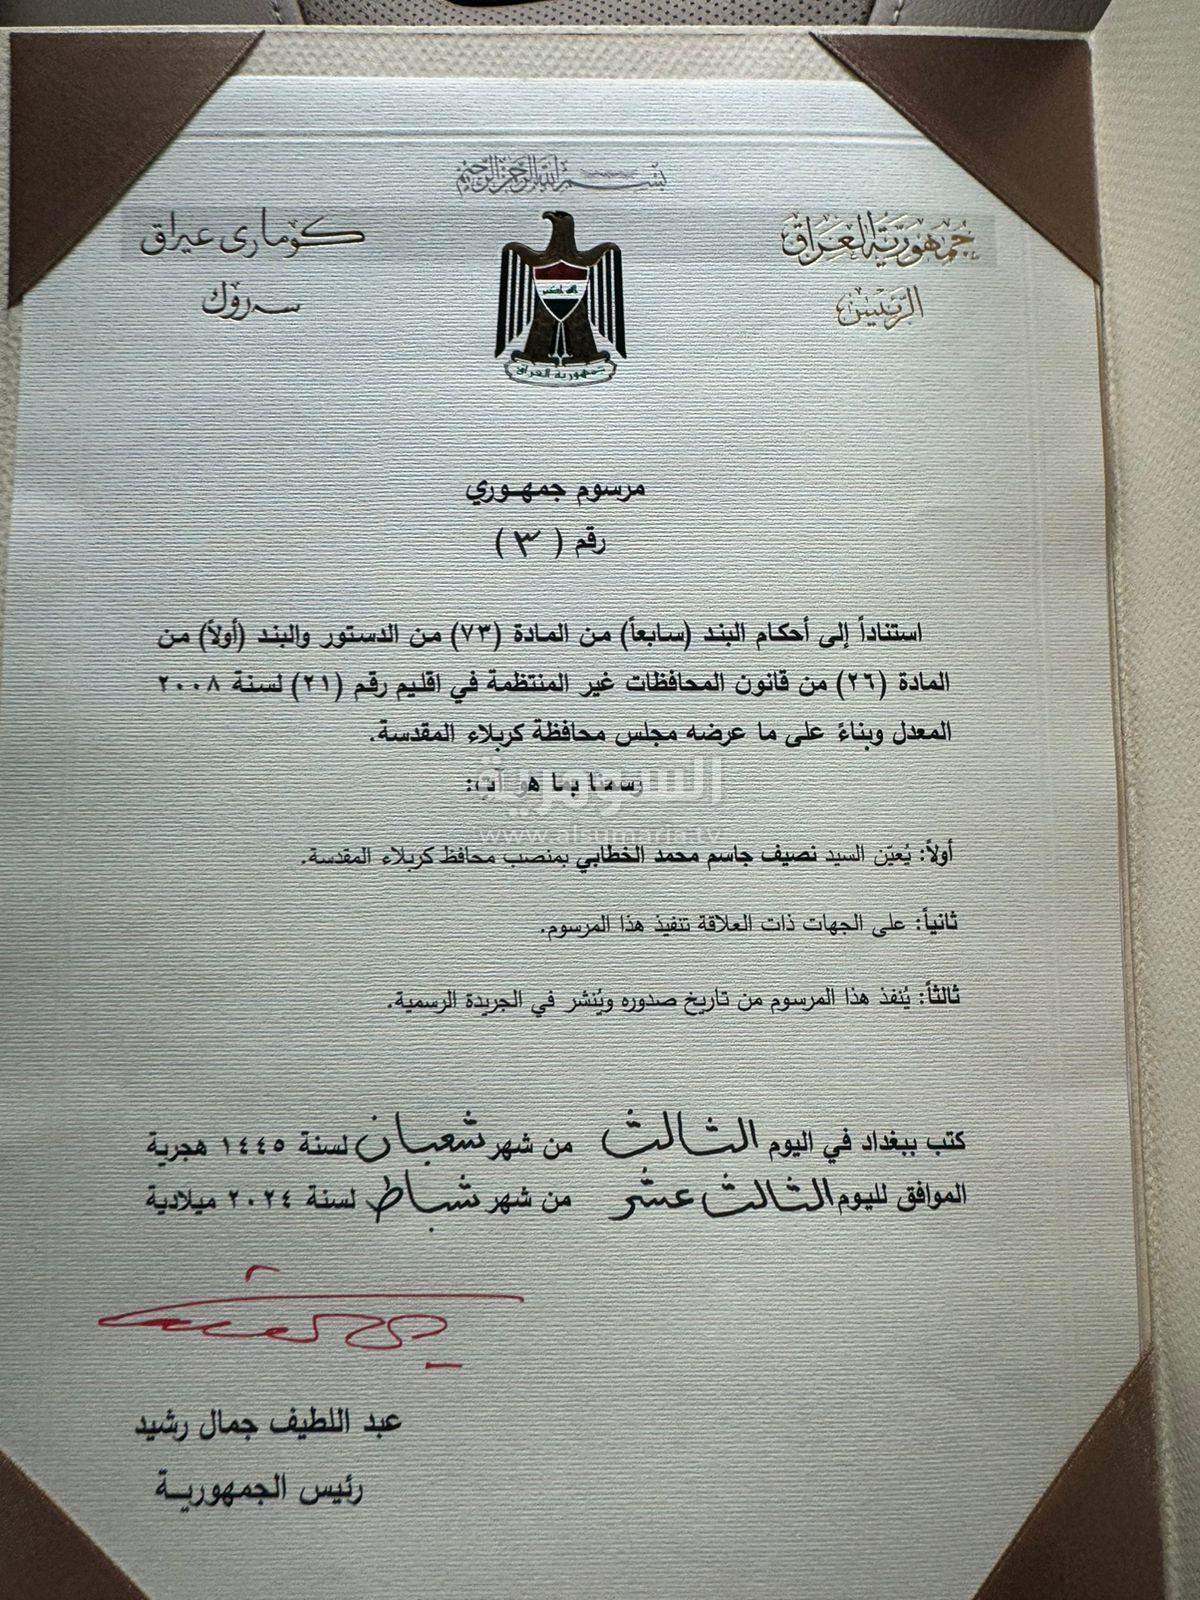 بسم الله الرحمن الرحيم
جمهورية العراق
الرئيس
كۆماری عێراق
سەرۆك
الله اكبر
جمهورية العراق
مرسوم جمهوري
رقم ( ٣ )
استناداً إلى أحكام البند (سابعاً) من المادة (٧٣) من الدستور والبند (أولاً) من
المادة (٢٦) من قانون المحافظات غير المنتظمة في اقليم رقم (٢١) لسنة ٢٠٠٨
المعدل وبناءً على ما عرضه مجلس محافظة كربلاء المقدسة.
رسمنا بما هو آتٍ:
السومرية
www.alsumaria.tv
أولاً: يُعيّن السيد نصيف جاسم محمد الخطابي بمنصب محافظ كربلاء المقدسة.
ثانياً: على الجهات ذات العلاقة تنفيذ هذا المرسوم.
ثالثاً: يُنفذ هذا المرسوم من تاريخ صدوره ويُنشر في الجريدة الرسمية.
كتب ببغداد في اليوم الثالث من شهر شعبان لسنة ١٤٤٥ هجرية
الموافق لليوم الثالث عشر من شهر شباط لسنة ٢٠٢٤ ميلادية
عبد اللطيف جمال رشيد
رئيس الجمهوريـة